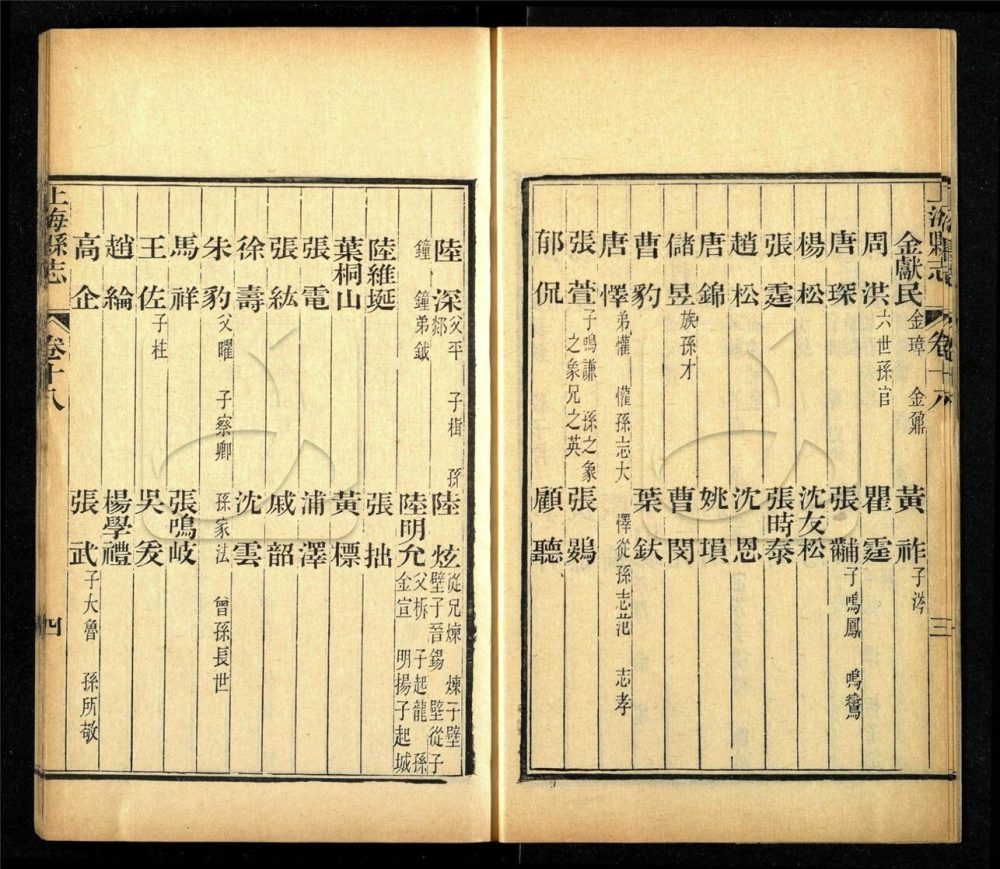 上海縣志 卷十八 三
金獻民 金璋 金鼐 黃祚 子涔
周洪 六世孫官 瞿霆
唐琛 張黼 子鳴鳳 鳴鸞
楊松 沈友松
張霆 張時泰
趙松 沈恩
唐錦 姚塤
儲昱 族孫才 曹閔
曹豹 葉鈇
唐懌 弟懽 懽孫志大 懌從孫志范 志孝
張萱 子鳴謙 孫之象 之象兄之英 張鶠
郁侃 顧聽
陸深 父平 子楫 孫郯 陸炫 從兄煉 煉子壁 壁子晉錫 壁從子
鐘 鐘弟鉞 陸明允 父柝 子起龍 孫金宣 明揚子起城
陸維埏 張拙
葉桐山 黃標
張電 浦澤
張紘 戚韶
徐壽 沈雲
朱豹 父曜 子察卿 孫家法 曾孫長世
馬祥 張鳴岐
王佐 子柱 吳爰
趙綸 楊學禮
高企 張武 子大魯 孫所敬
上海縣志 卷十八 四